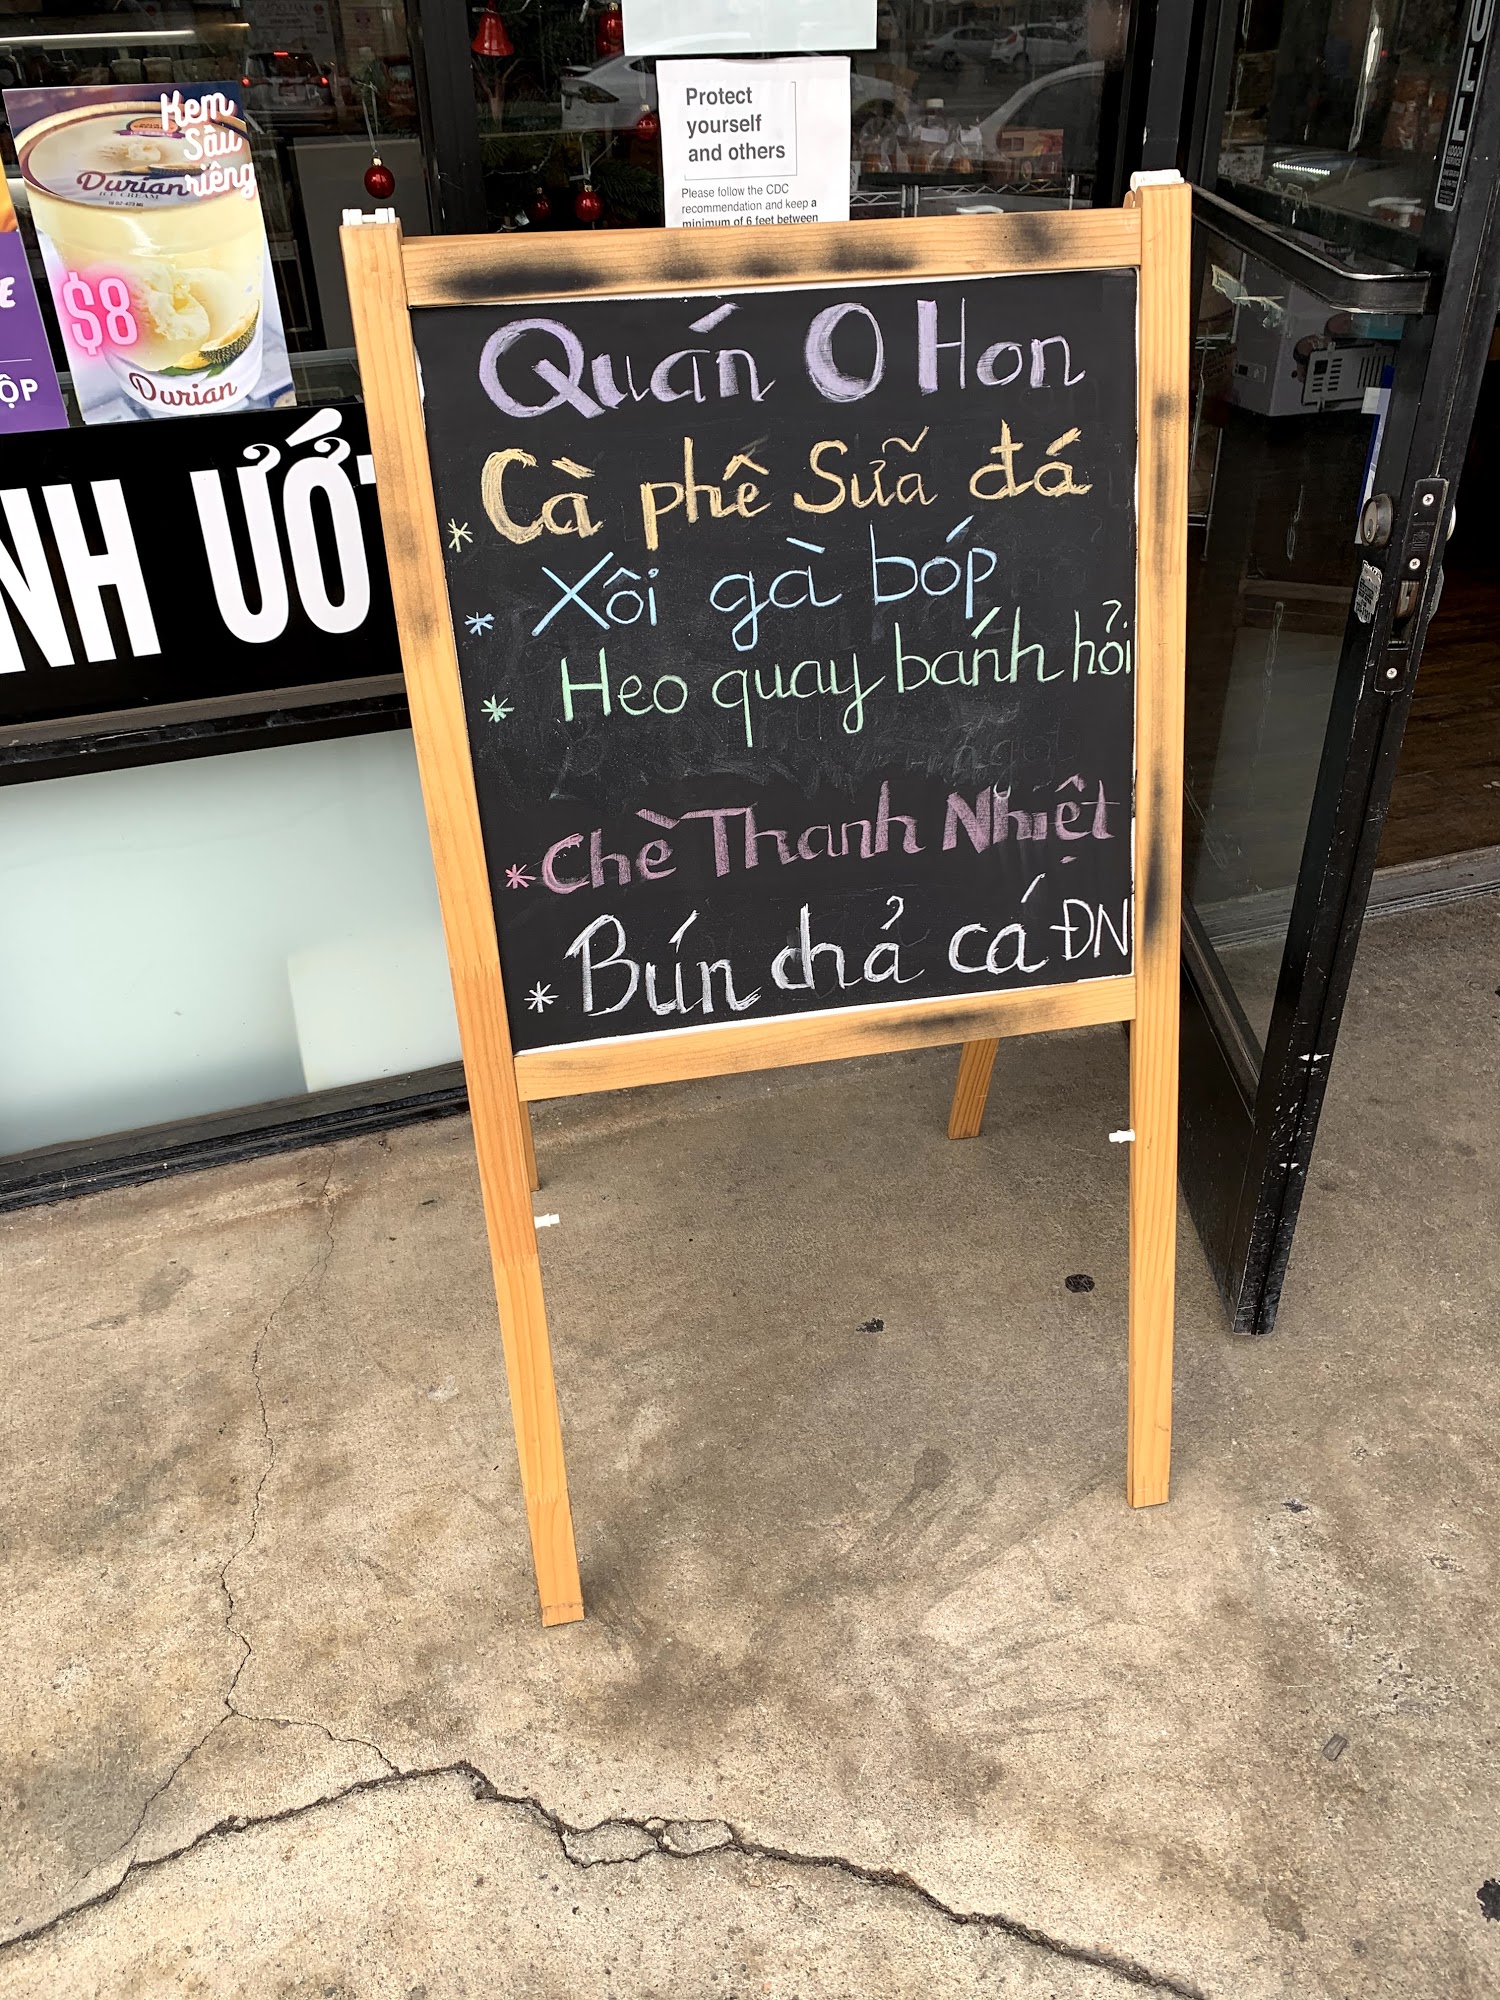 Kem
Sầu
riêng
Durian
ICE CREAM
$8
Durian
ỘP
NH ƯỚ
Protect
yourself
and others
Please follow the CDC
recommendation and keep a
minimum of 6 feet between
Quán O Hon
* Cà phê Sữa đá
* Xôi gà bóp
* Heo quay bánh hỏi
* Chè Thanh Nhiệt
* Bún chả cá ĐN